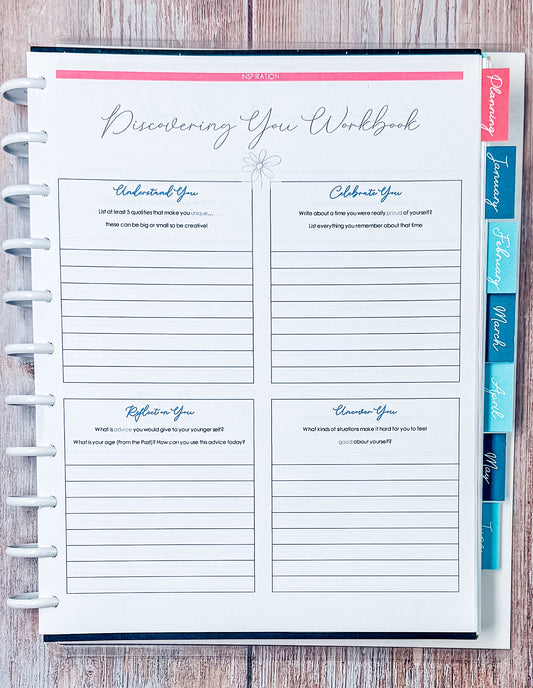 INSPIRATION
Discovering You Workbook
Understand You
List at least 5 qualities that make you unique...
these can be big or small so be creative!
Celebrate You
Write about a time you were really proud of yourself?
List everything you remember about that time
Reflect on You
What is advice you would give to your younger self?
What is your age (from the Past)? How can you use this advice today?
Uncover You
What kinds of situations make it hard for you to feel
good about yourself?
Planning
January
February
March
April
May
June